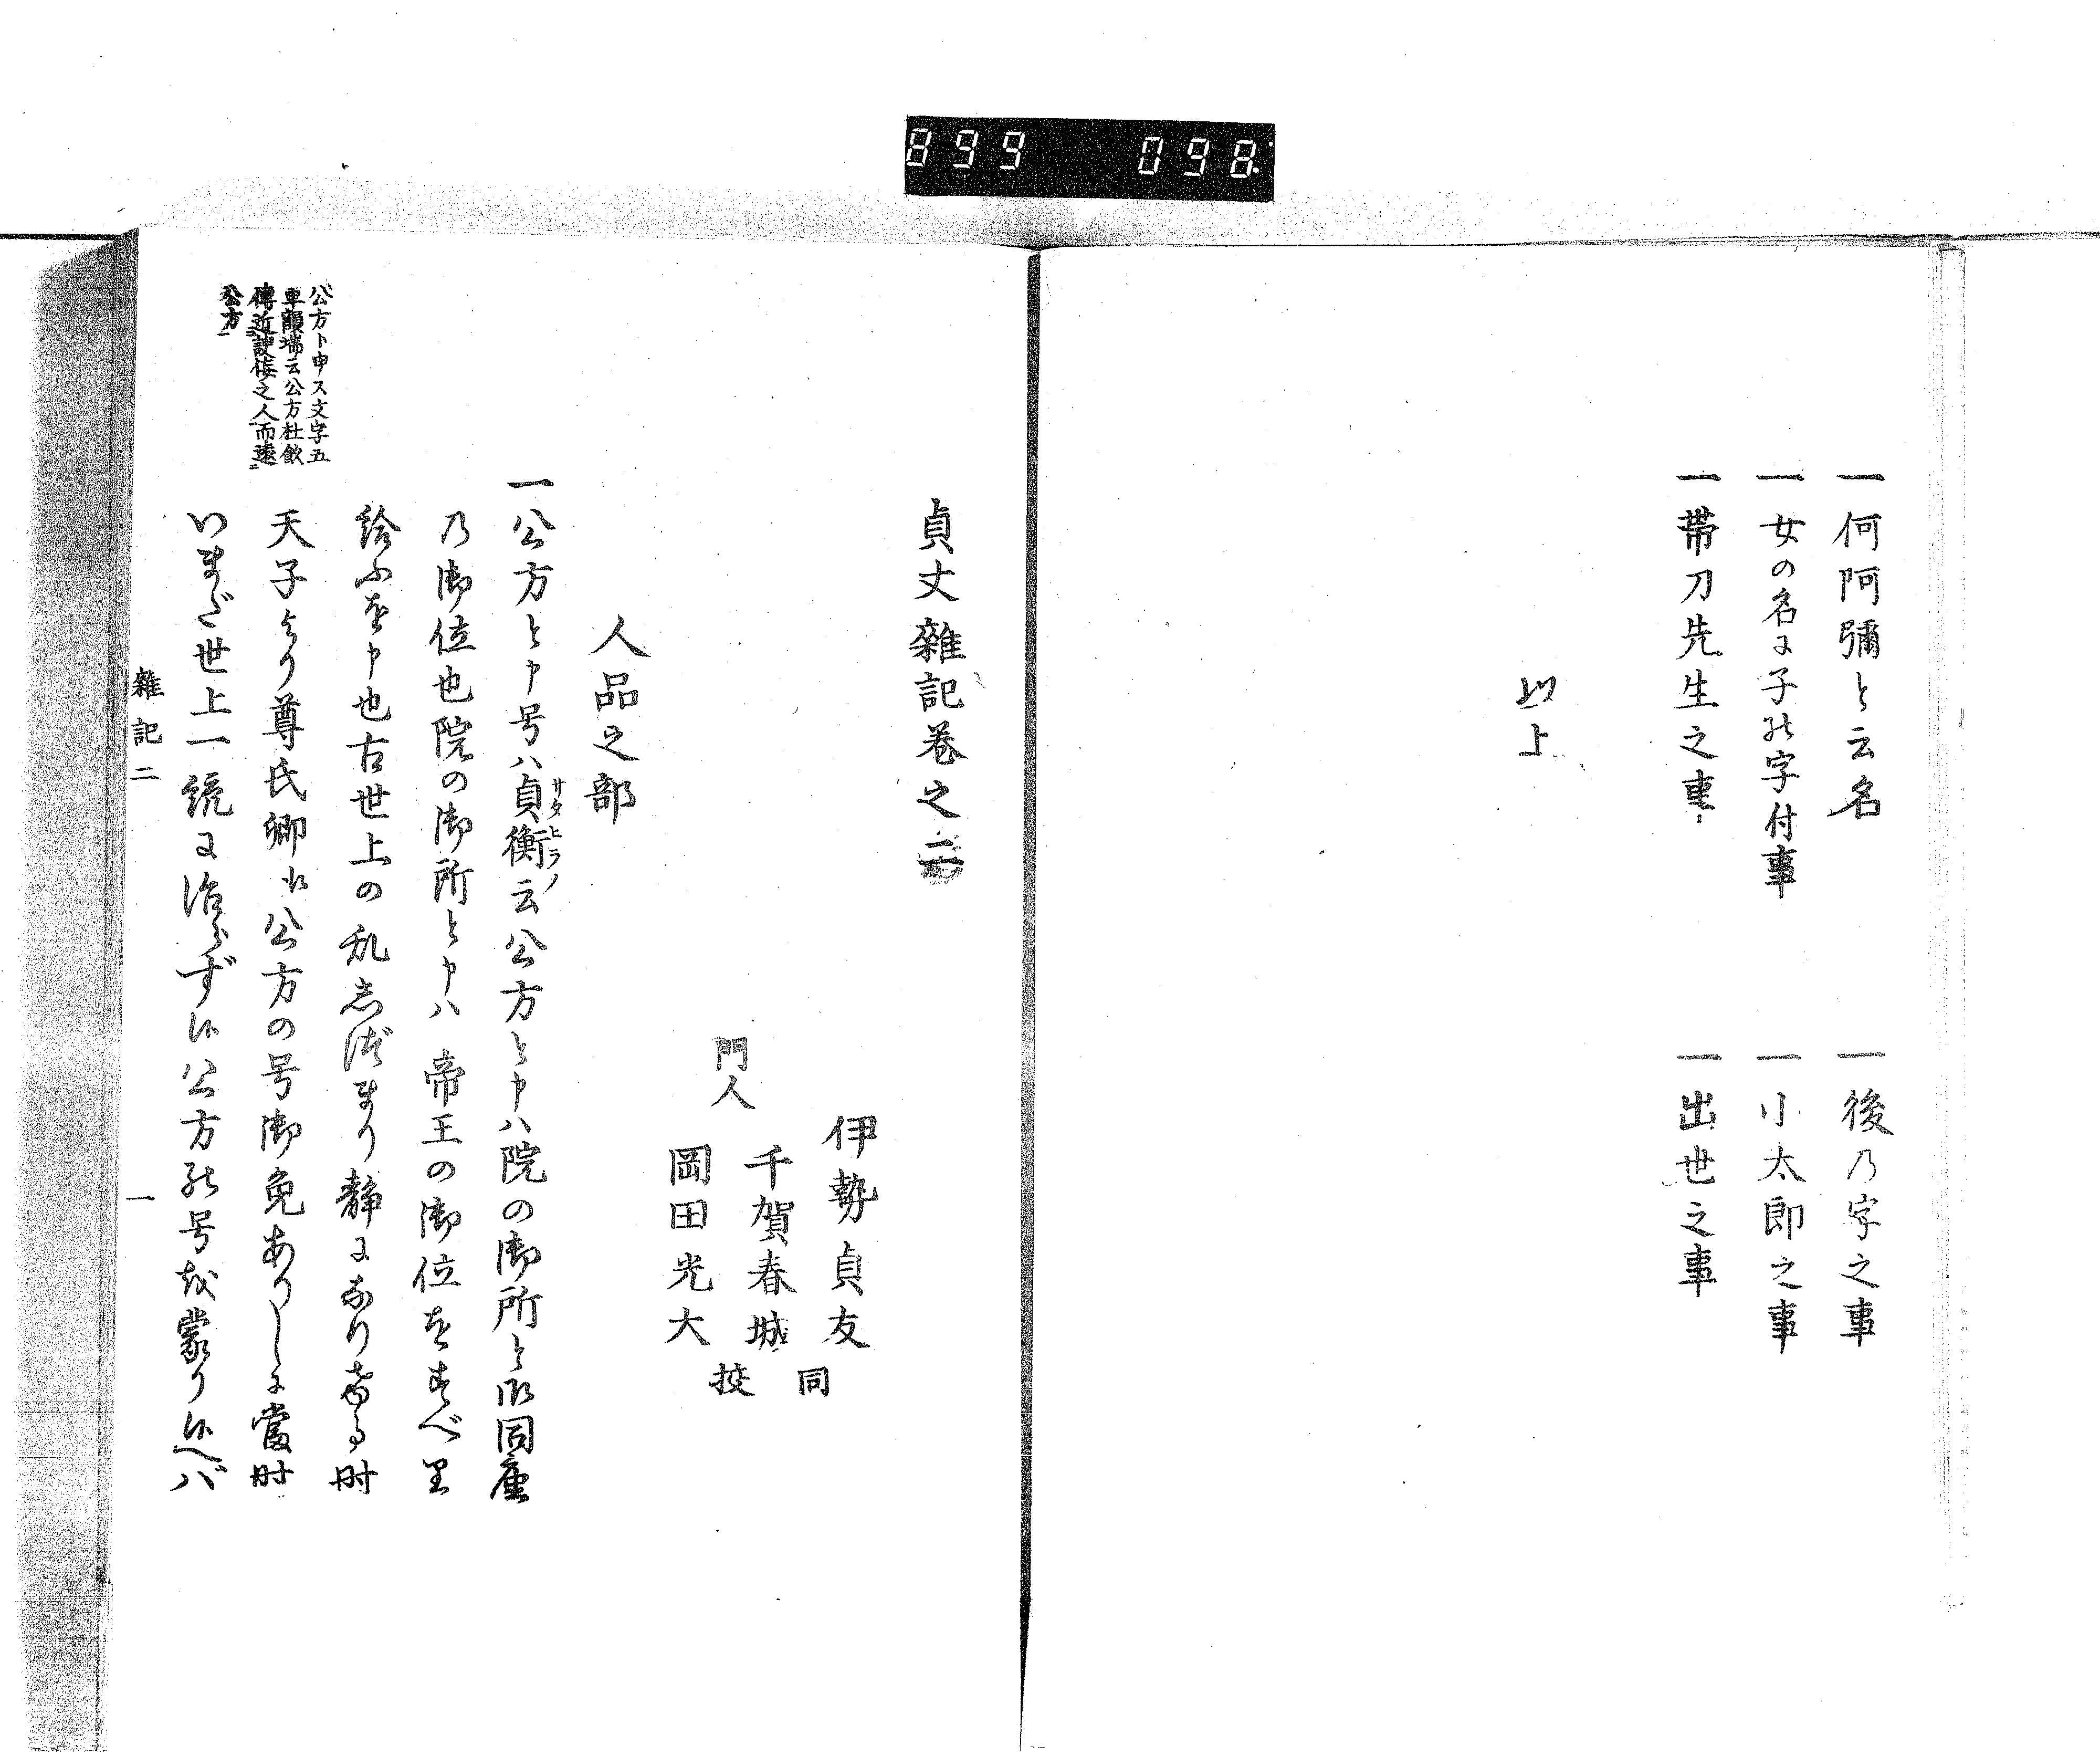 899 098
一何阿彌と云名
一後乃字之事
一女の名に子の字付事
一小太郎之事
一帯刀先生之事
一出世之事
以上
貞丈雑記巻之二
伊勢貞友
門人 千賀春城
岡田光大
同
挍
人品之部
一公方と申号ハ貞衡云公方と申ハ院の御所と御同座
サダヒラノ
乃御位也院の御所と申ハ 帝王の御位をすべり
給ふを申也古世上の乱しづまり静になりたる時
天子より尊氏卿に公方の号御免ありしに當時
いまだ世上一統に治らずに公方の号を蒙り候へバ
公方ト申ス文字五
車韻瑞云公方杜欽
傳近諛佞之人而遠
公方
雜記二
一